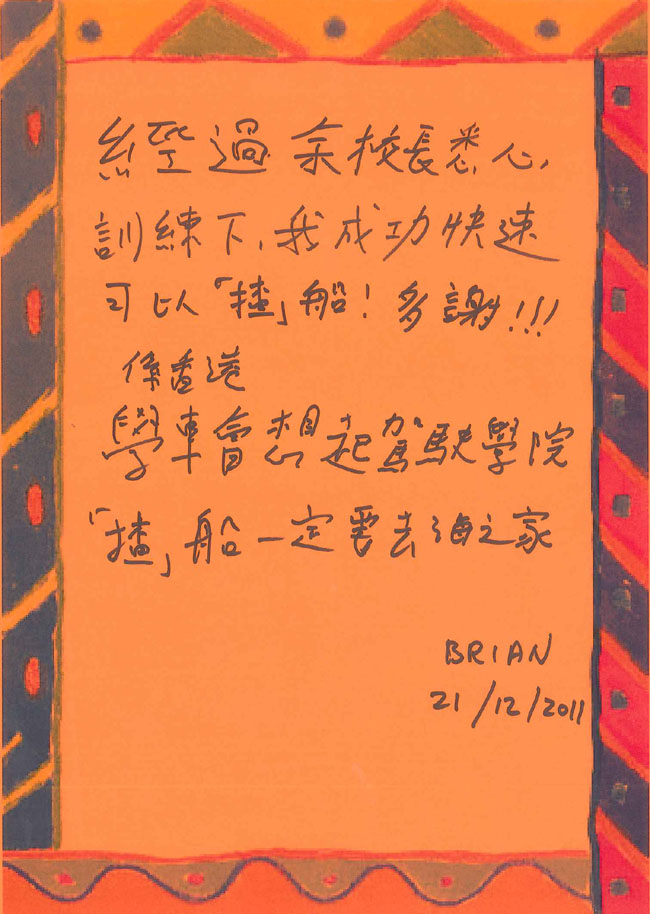 經過余校長悉心,
訓練下,我成功快速
可以「揸」船！多謝!!!
係香港
學車會想起駕駛學院
「揸」船一定要去海之家
BRIAN
21/12/2011